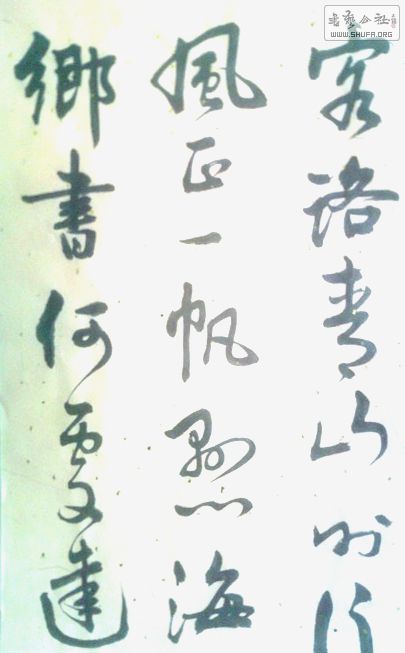 書藝公社
WWW.SHUFA.ORG
客路青山外行
風正一帆懸海
鄉書何處達